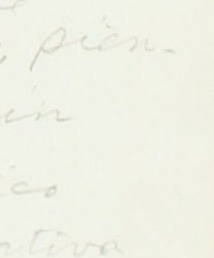 pien-
in
ico
rtiva